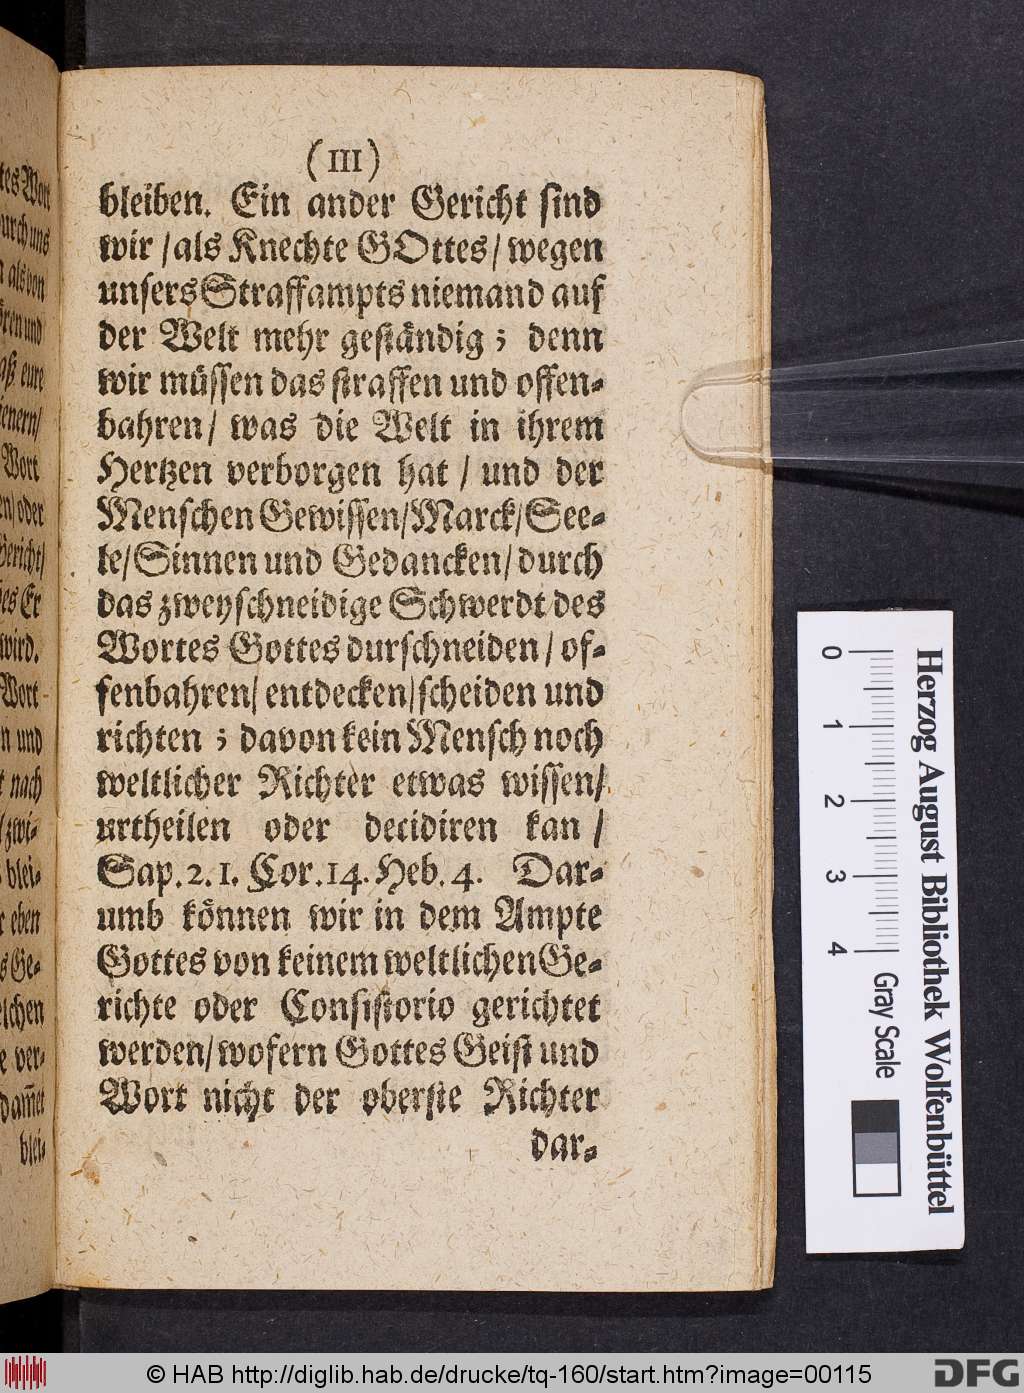 (III)
bleiben. Ein ander Gericht sind
wir / als Knechte GOttes / wegen
unsers Straffampts niemand auf
der Welt mehr geständig ; denn
wir müssen das straffen und offen-
bahren / was die Welt in ihrem
Hertzen verborgen hat / und der
Menschen Gewissen / Marck / See-
le / Sinnen und Gedancken / durch
das zweyschneidige Schwerdt des
Wortes Gottes durschneiden / of-
fenbahren / entdecken / scheiden und
richten ; davon kein Mensch noch
weltlicher Richter etwas wissen /
urtheilen oder decidiren kan /
Sap. 2. 1. Cor. 14. Heb. 4. Dar-
umb können wir in dem Ampte
Gottes von keinem weltlichen Ge-
richte oder Consistorio gerichtet
werden / wofern Gottes Geist und
Wort nicht der oberste Richter
dar-
Herzog August Bibliothek Wolfenbüttel
0 1 2 3 4 Gray Scale
© HAB http://diglib.hab.de/drucke/tq-160/start.htm?image=00115
DFG